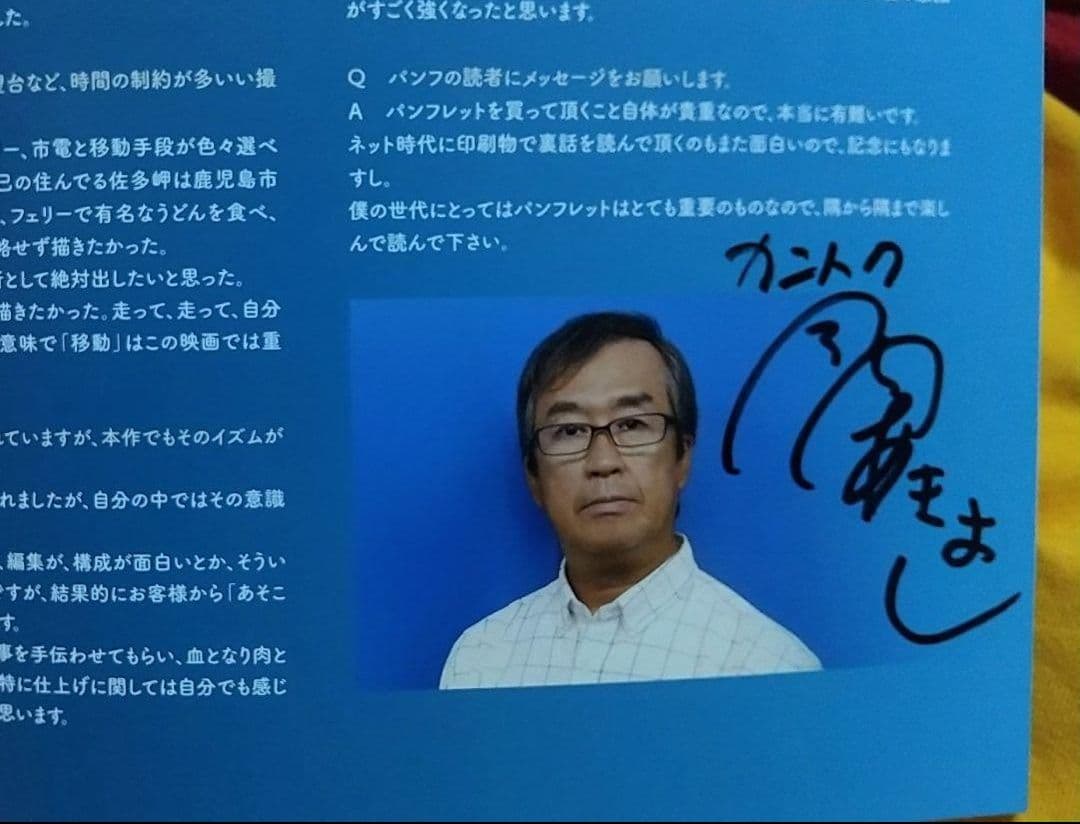 した。
台など、時間の制約が多いい撮
ー、市電と移動手段が色々選べ
己の住んでる佐多岬は鹿児島市
、フェリーで有名なうどんを食べ、
略せず描きたかった。
所として絶対出したいと思った。
描きたかった。走って、走って、自分
意味で「移動」はこの映画では重
れていますが、本作でもそのイズムが
れましたが、自分の中ではその意識
、編集が、構成が面白いとか、そうい
ですが、結果的にお客様から「あそこ
す。
事を手伝わせてもらい、血となり肉と
特に仕上げに関しては自分でも感じ
思います。
がすごく強くなったと思います。
Q パンフの読者にメッセージをお願いします。
A パンフレットを買って頂くこと自体が貴重なので、本当に有難いです。
ネット時代に印刷物で裏話を読んで頂くのもまた面白いので、記念にもなりま
すし。
僕の世代にとってはパンフレットはとても重要のものなので、隅から隅まで楽し
んで読んで下さい。
カントク